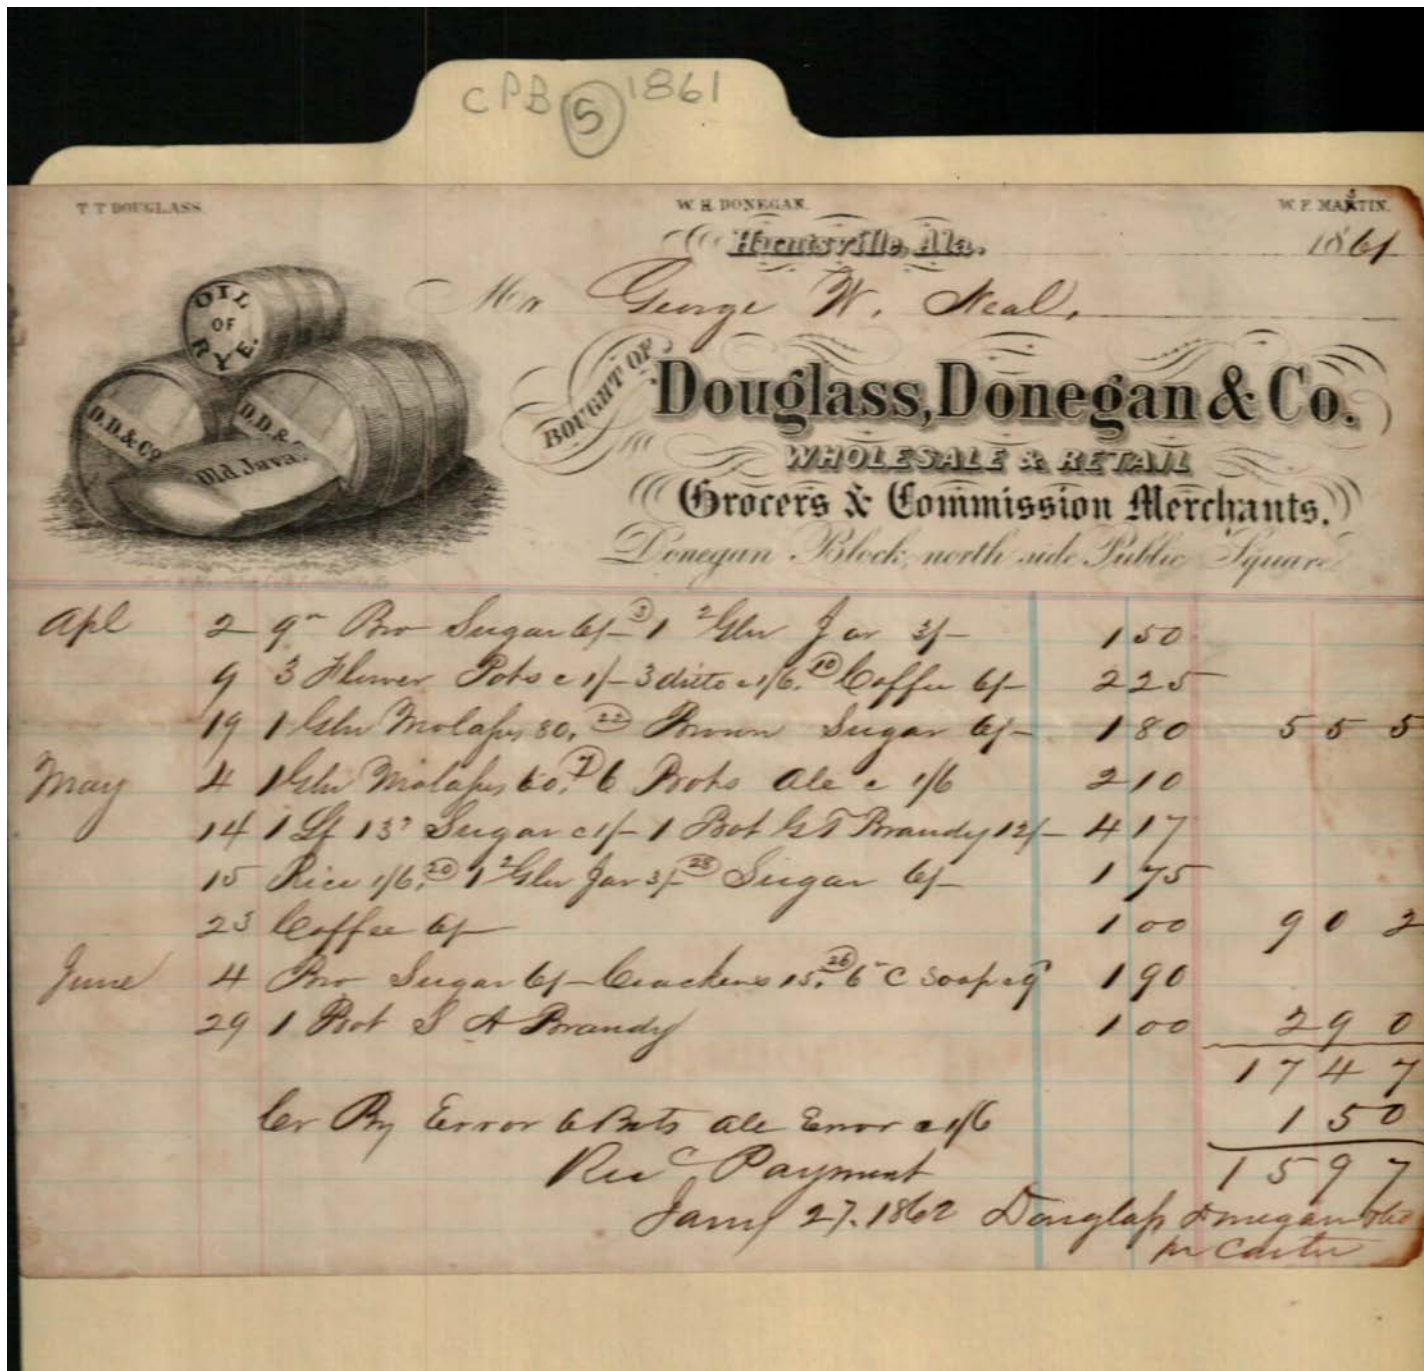 CPB 5 1861
T T DOUGLASS. W. H. DONEGAN. W. F. MARTIN.
Huntsville, Ala. 1861
Mr George W. Neal,
BOUGHT OF
Douglass, Donegan & Co.
WHOLESALE & RETAIL
Grocers & Commission Merchants.
Donegan Block, north side Public Square
OIL OF RYE.
D.D. & CO
D.D. &
Old Java
Apl 2 9 Bro Sugar 6/- (3) 1 2 Gln Jar 3/- 1 50
9 3 Flower Pots c 1/- 3 ditto c 1/6. (10) Coffee 6/- 2 25
19 1 Gln Molasses 80, (22) Brown Sugar 6/- 1 80 5 5 5
May 4 1 Gln Molasses 60, (7) 6 Bots Ale c 1/6 2 10
14 1 Lf 13 Sugar c 1/- 1 Bot G T Brandy 12/- 4 17
15 Rice 1/6, (20) 1 2 Gln Jar 3/- (25) Sugar 6/- 1 75
23 Coffee 6/- 1 00 9 0 2
June 4 Bro Sugar 6/- Crackers 15, (26) 6 C Soap 1 90
29 1 Bot S A Brandy 1 00 2 9 0
17 4 7
Cr By Error 6 Bots Ale Error c 1/6 1 5 0
1 5 9 7
Rec Payment
Jany 27. 1862 Douglass Donegan &Co
pr Carter